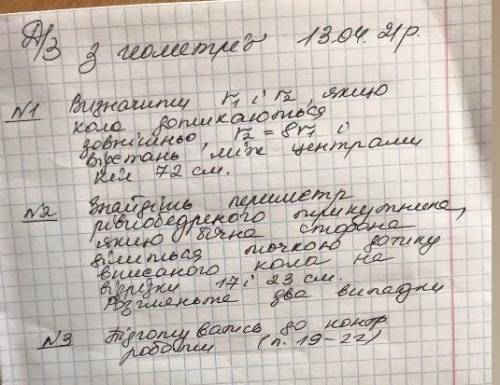 Д/З з геометрії 13.04.21р.
N1 Визначити r₁ і r₂, якщо
кола дотикаються
зовнішньо, r₂ = 8r₁ і
відстань між центрами
кіл 72 см.
N2 Знайдіть периметр
рівнобедреного трикутника,
якщо бічна сторона
ділиться точкою дотику
вписаного кола на
відрізки 17 і 23 см.
Розгляньте два випадки
N3 Підготуватись до контр
роботи (п. 19-22)